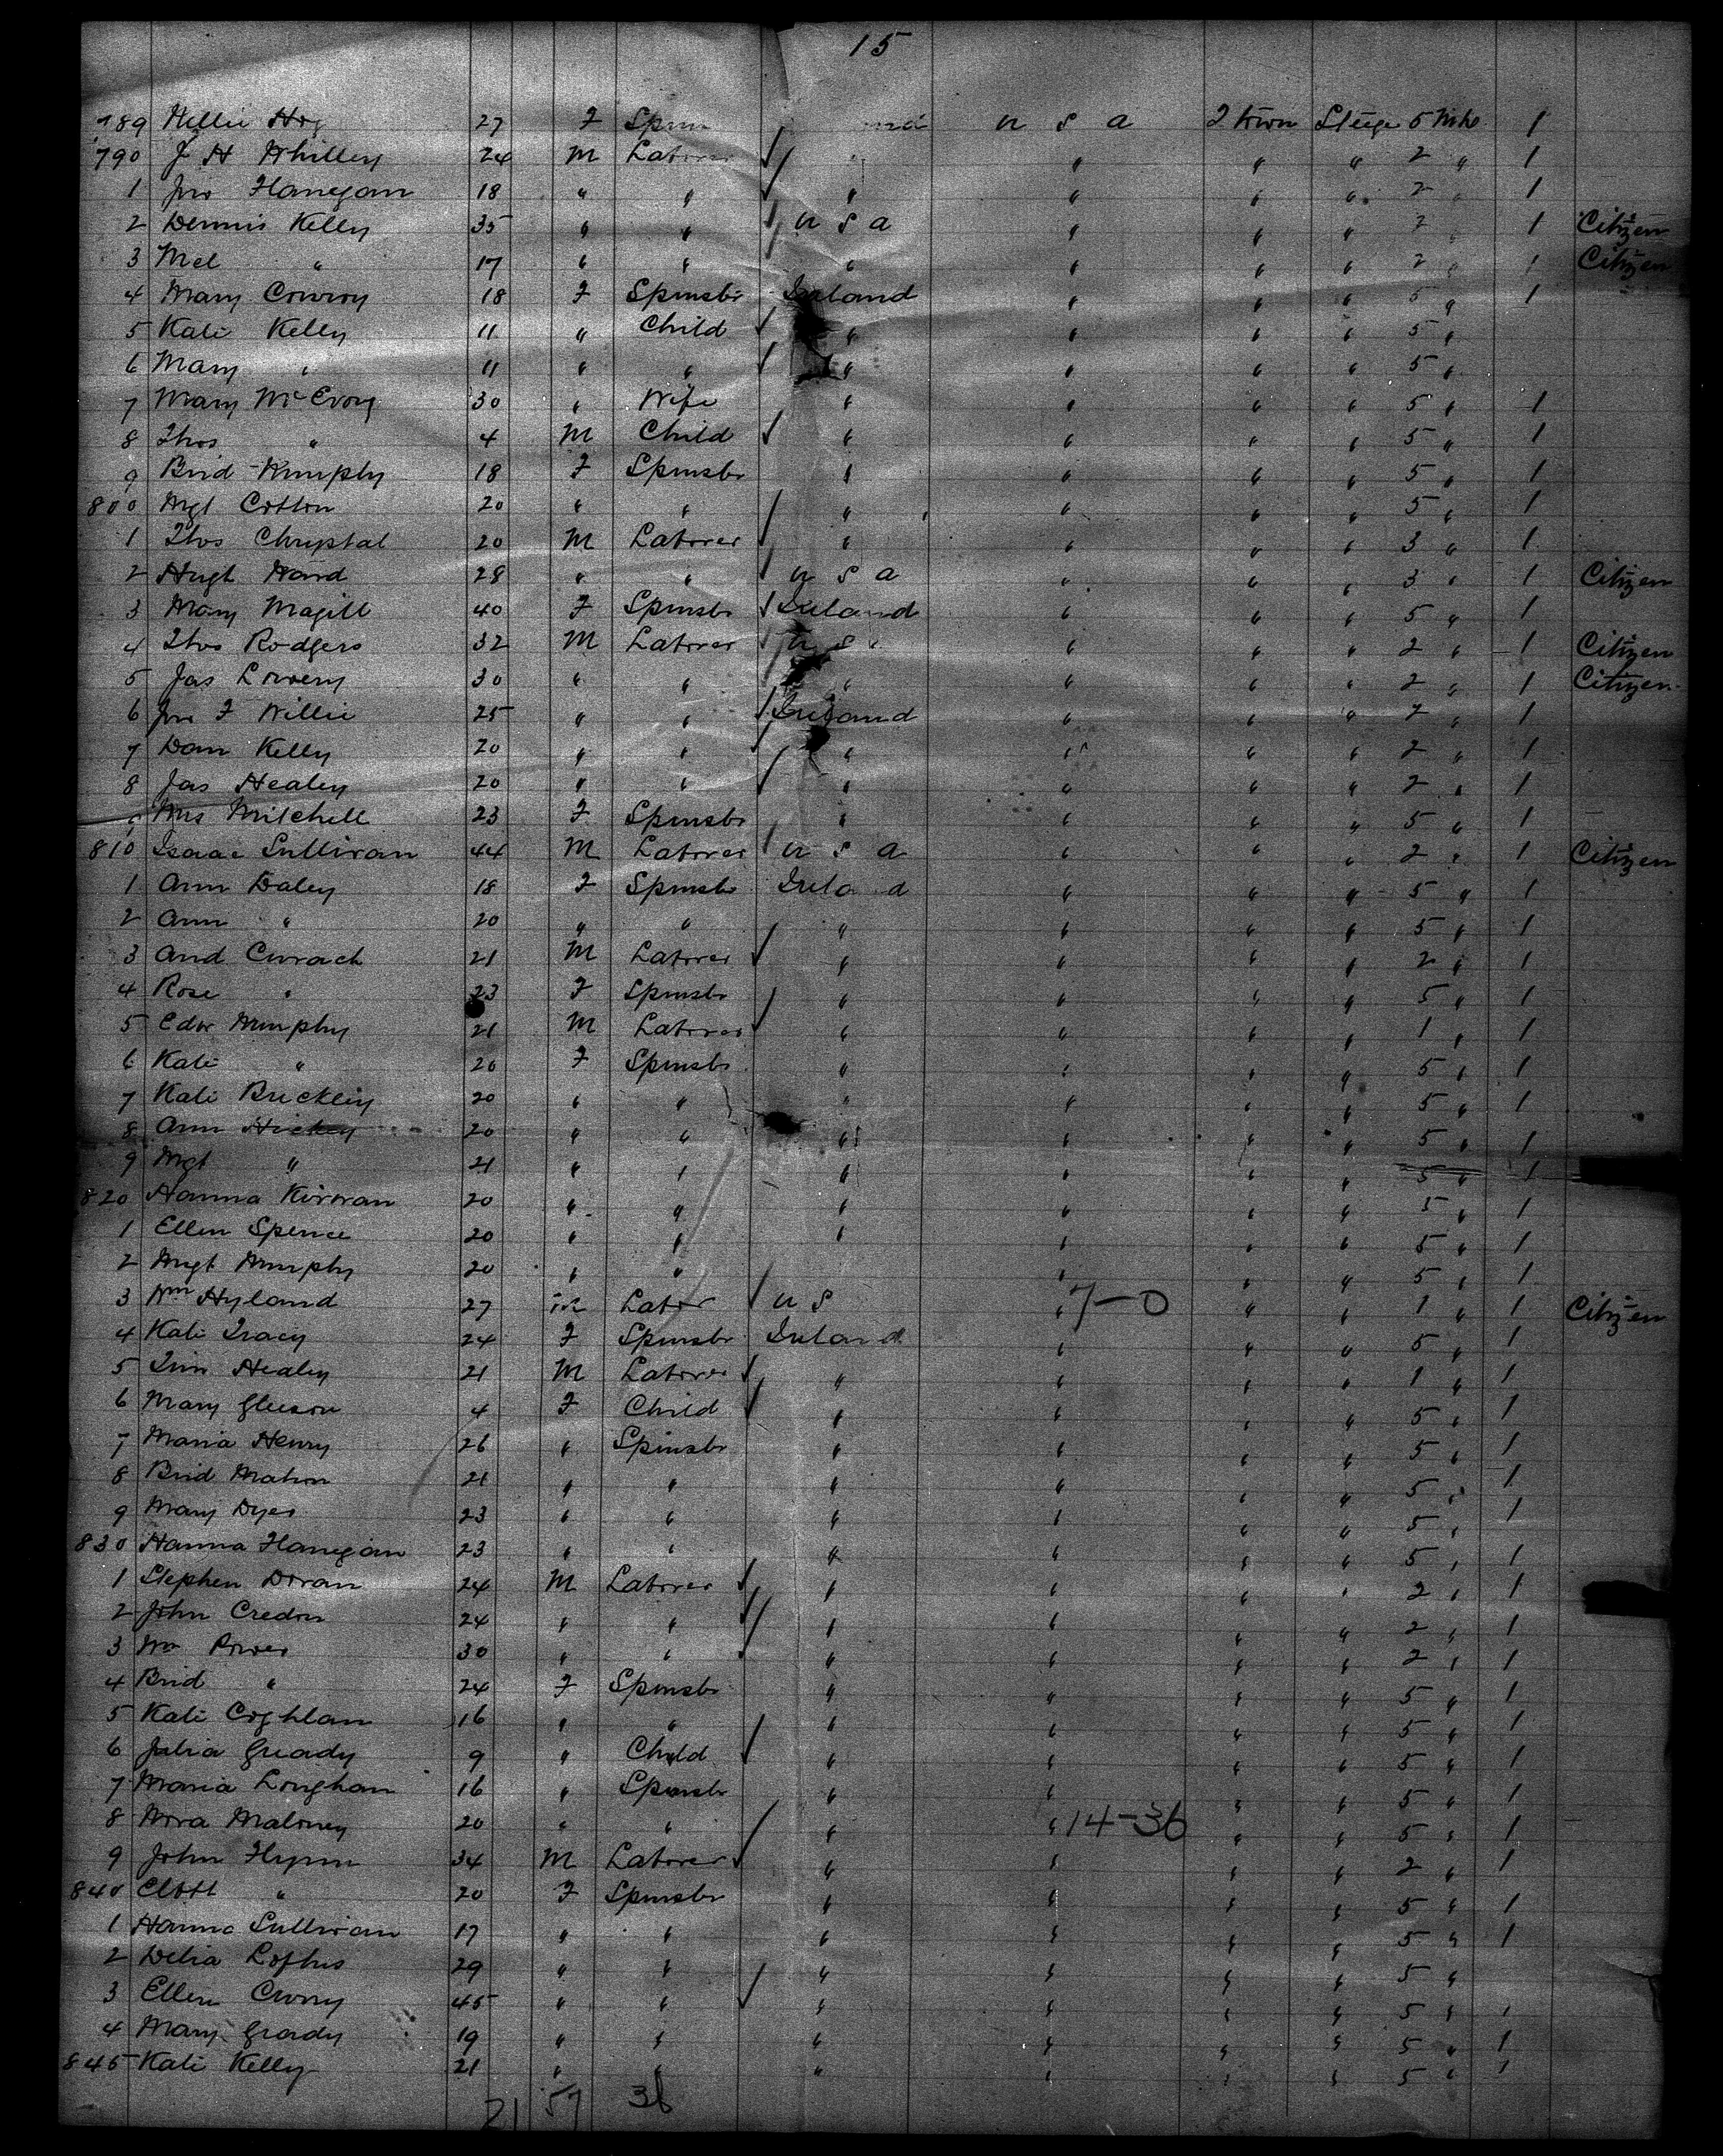 15
789 Nellie 27 F Spin U S A 2 town Steege 5 1
790 J H Whilley 24 M Laborer " " " " 2 " 1
1 Jno Flanegan 18 " " " " " " 2 " 1
2 Dennis Kelly 35 " " U S A " " " 2 " 1 Citizen
3 Mel " 17 " " " " " " 2 " 1 Citizen
4 Mary Conroy 18 F Spinstr Ireland " " " 5 " 1
5 Kate Kelly 11 " Child " " " " 5 "
6 Mary " 11 " " " " " " 5 "
7 Mary McEvoy 30 " Wife " " " " 5 " 1
8 Thos " 4 M Child " " " " 5 " 1
9 Brid Murphy 18 F Spinstr " " " " 5 " 1
800 Mgt Cotton 20 " " " " " " 5 " 1
1 Thos Chrystal 20 M Laborer " " " " 3 " 1
2 Hugh Ward 28 " " U S A " " " 3 " 1 Citizen
3 Mary Magill 40 F Spinstr Ireland " " " 5 " 1
4 Thos Rodgers 32 M Laborer U S " " " 2 " 1 Citizen
5 Jas Lowery 30 " " " " " " 2 " 1 Citizen
6 Jno F Willie 25 " " Ireland " " " 2 " 1
7 Dan Kelly 20 " " " " " " 2 " 1
8 Jas Healey 20 " " " " " " 2 " 1
9 Mrs Mitchell 23 F Spinstr " " " " 5 " 1
810 Isaac Sullivan 44 M Laborer U S A " " " 2 " 1 Citizen
1 Ann Daley 18 F Spinstr Ireland " " " 5 " 1
2 Ann " 20 " " " " " " 5 " 1
3 And Curach 21 M Laborer " " " " 2 " 1
4 Rose " 23 F Spinstr " " " " 5 " 1
5 Edw Murphy 21 M Laborer " " " " 1 " 1
6 Kate " 20 F Spinstr " " " " 5 " 1
7 Kate Buckley 20 " " " " " " 5 " 1
8 Ann Hickey 20 " " " " " " 5 " 1
9 Mgt " 21 " " " " " " 5 " 1
820 Hanna Kirwan 20 " " " " " " 5 " 1
1 Ellen Spence 20 " " " " " " 5 " 1
2 Mgt Murphy 20 " " " " " 5 " 1
3 Wm Hyland 27 M Labor U S " 7-0 " " 1 " 1 Citizen
4 Kate Tracy 24 F Spinstr Ireland " " " 5 " 1
5 Tim Healey 21 M Laborer " " " " 1 " 1
6 Mary Gleeson 4 F Child " " " " 5 " 1
7 Maria Henry 26 " Spinstr " " " " 5 " 1
8 Brid Mahon 21 " " " " " " 5 " 1
9 Mary Dyer 23 " " " " " " 5 " 1
830 Hanna Flanegan 23 " " " " " " 5 " 1
1 Stephen Doran 24 M Laborer " " " " 2 " 1
2 John Credon 24 " " " " " " 2 " 1
3 Wm Power 30 " " " " " " 2 " 1
4 Brid " 24 F Spinstr " " " " 5 " 1
5 Kate Coghlan 16 " " " " " " 5 " 1
6 Julia Grady 9 " Child " " " " 5 " 1
7 Maria Longhan 16 " Spinstr " " " " 5 " 1
8 Nora Maloney 20 " " " " 14-36 " " 5 " 1
9 John Flynn 34 M Laborer " " " " 2 " 1
840 " 20 F Spinstr " " " " 5 " 1
1 Hanna Sullivan 17 " " " " " " 5 " 1
2 Delia Loftus 29 " " " " " " 5 "
3 Ellen 45 " " " " " " 5 " 1
4 Mary Grady 19 " " " " " " 5 " 1
845 Kate Kelly 21 " " " " " " 5 " 1
21 57 36